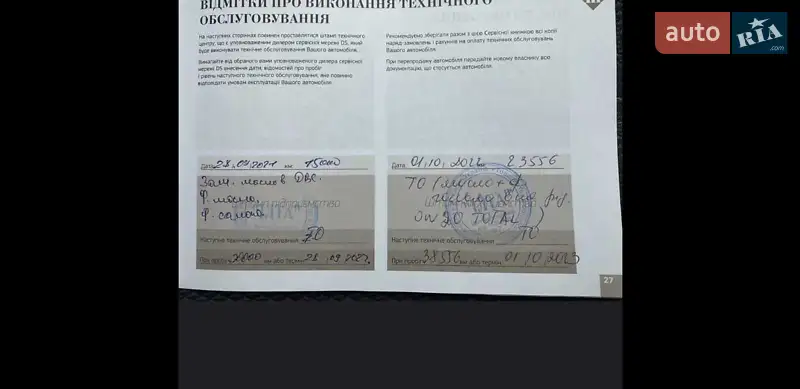 ВІДМІТКИ ПРО ВИКОНАННЯ ТЕХНІЧНОГО
ОБСЛУГОВУВАННЯ
На наступних сторінках повинен проставлятися штамп технічного
центру, що є уповноваженим дилером сервісної мережі DS, який
буде виконувати технічне обслуговування Вашого автомобіля.
Вимагайте від обраного вами уповноваженого дилера сервісної
мережі DS внесення дати, відомостей про пробіг
і рівень наступного технічного обслуговування, яке повинно
відповідати умовам експлуатації Вашого автомобіля.
Дата 28.09.2021 км 15000
Зам. масло в ДВС.
Ф. масло.
Ф. салона
Наступне технічне обслуговування: ТО
При пробігу км або термін 28.09.2022
Рекомендуємо зберігати разом з цією Сервісною книжкою всі копії
наряд-замовлень і рахунків на оплату технічних обслуговувань
Вашого автомобіля.
При перепродажу автомобіля передайте новому власнику всю
документацію, що стосується автомобіля.
Дата 01.10.2022 км 23556
ТО (масло + ф
0w20 TOTAL)
Наступне технічне обслуговування: ТО
При пробігу 38556 км або термін 01.10.2023
27
auto RIA
.com